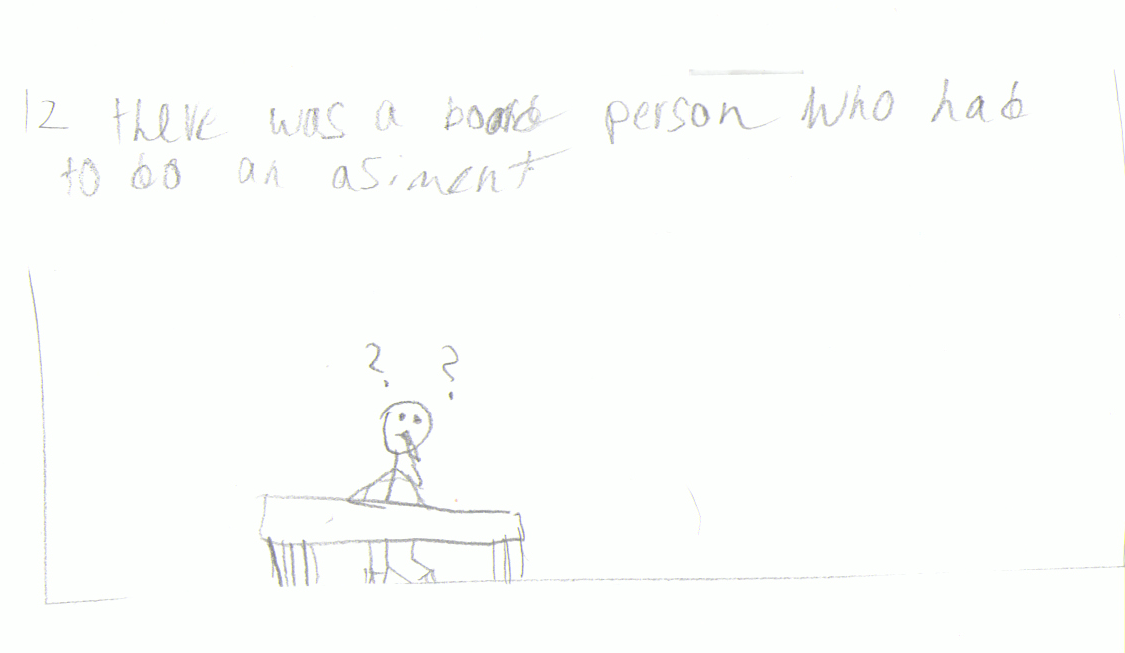 12 there was a board person who had
to do an asiment
? ?